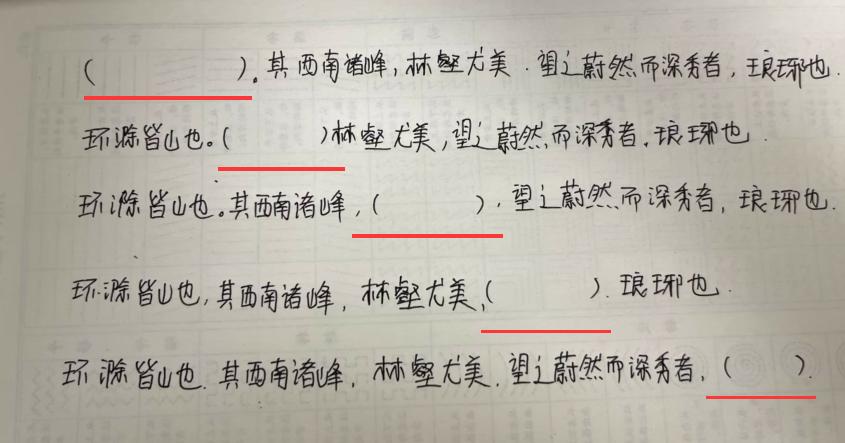 (        )。其西南诸峰，林壑尤美．望之蔚然而深秀者，琅琊也．
环滁皆山也。(        )林壑尤美，望之蔚然而深秀者．琅琊也．
环滁皆山也。其西南诸峰，(        )，望之蔚然而深秀者，琅琊也．
环滁皆山也，其西南诸峰，林壑尤美，(        )．琅琊也．
环滁皆山也．其西南诸峰，林壑尤美．望之蔚然而深秀者，(        )．